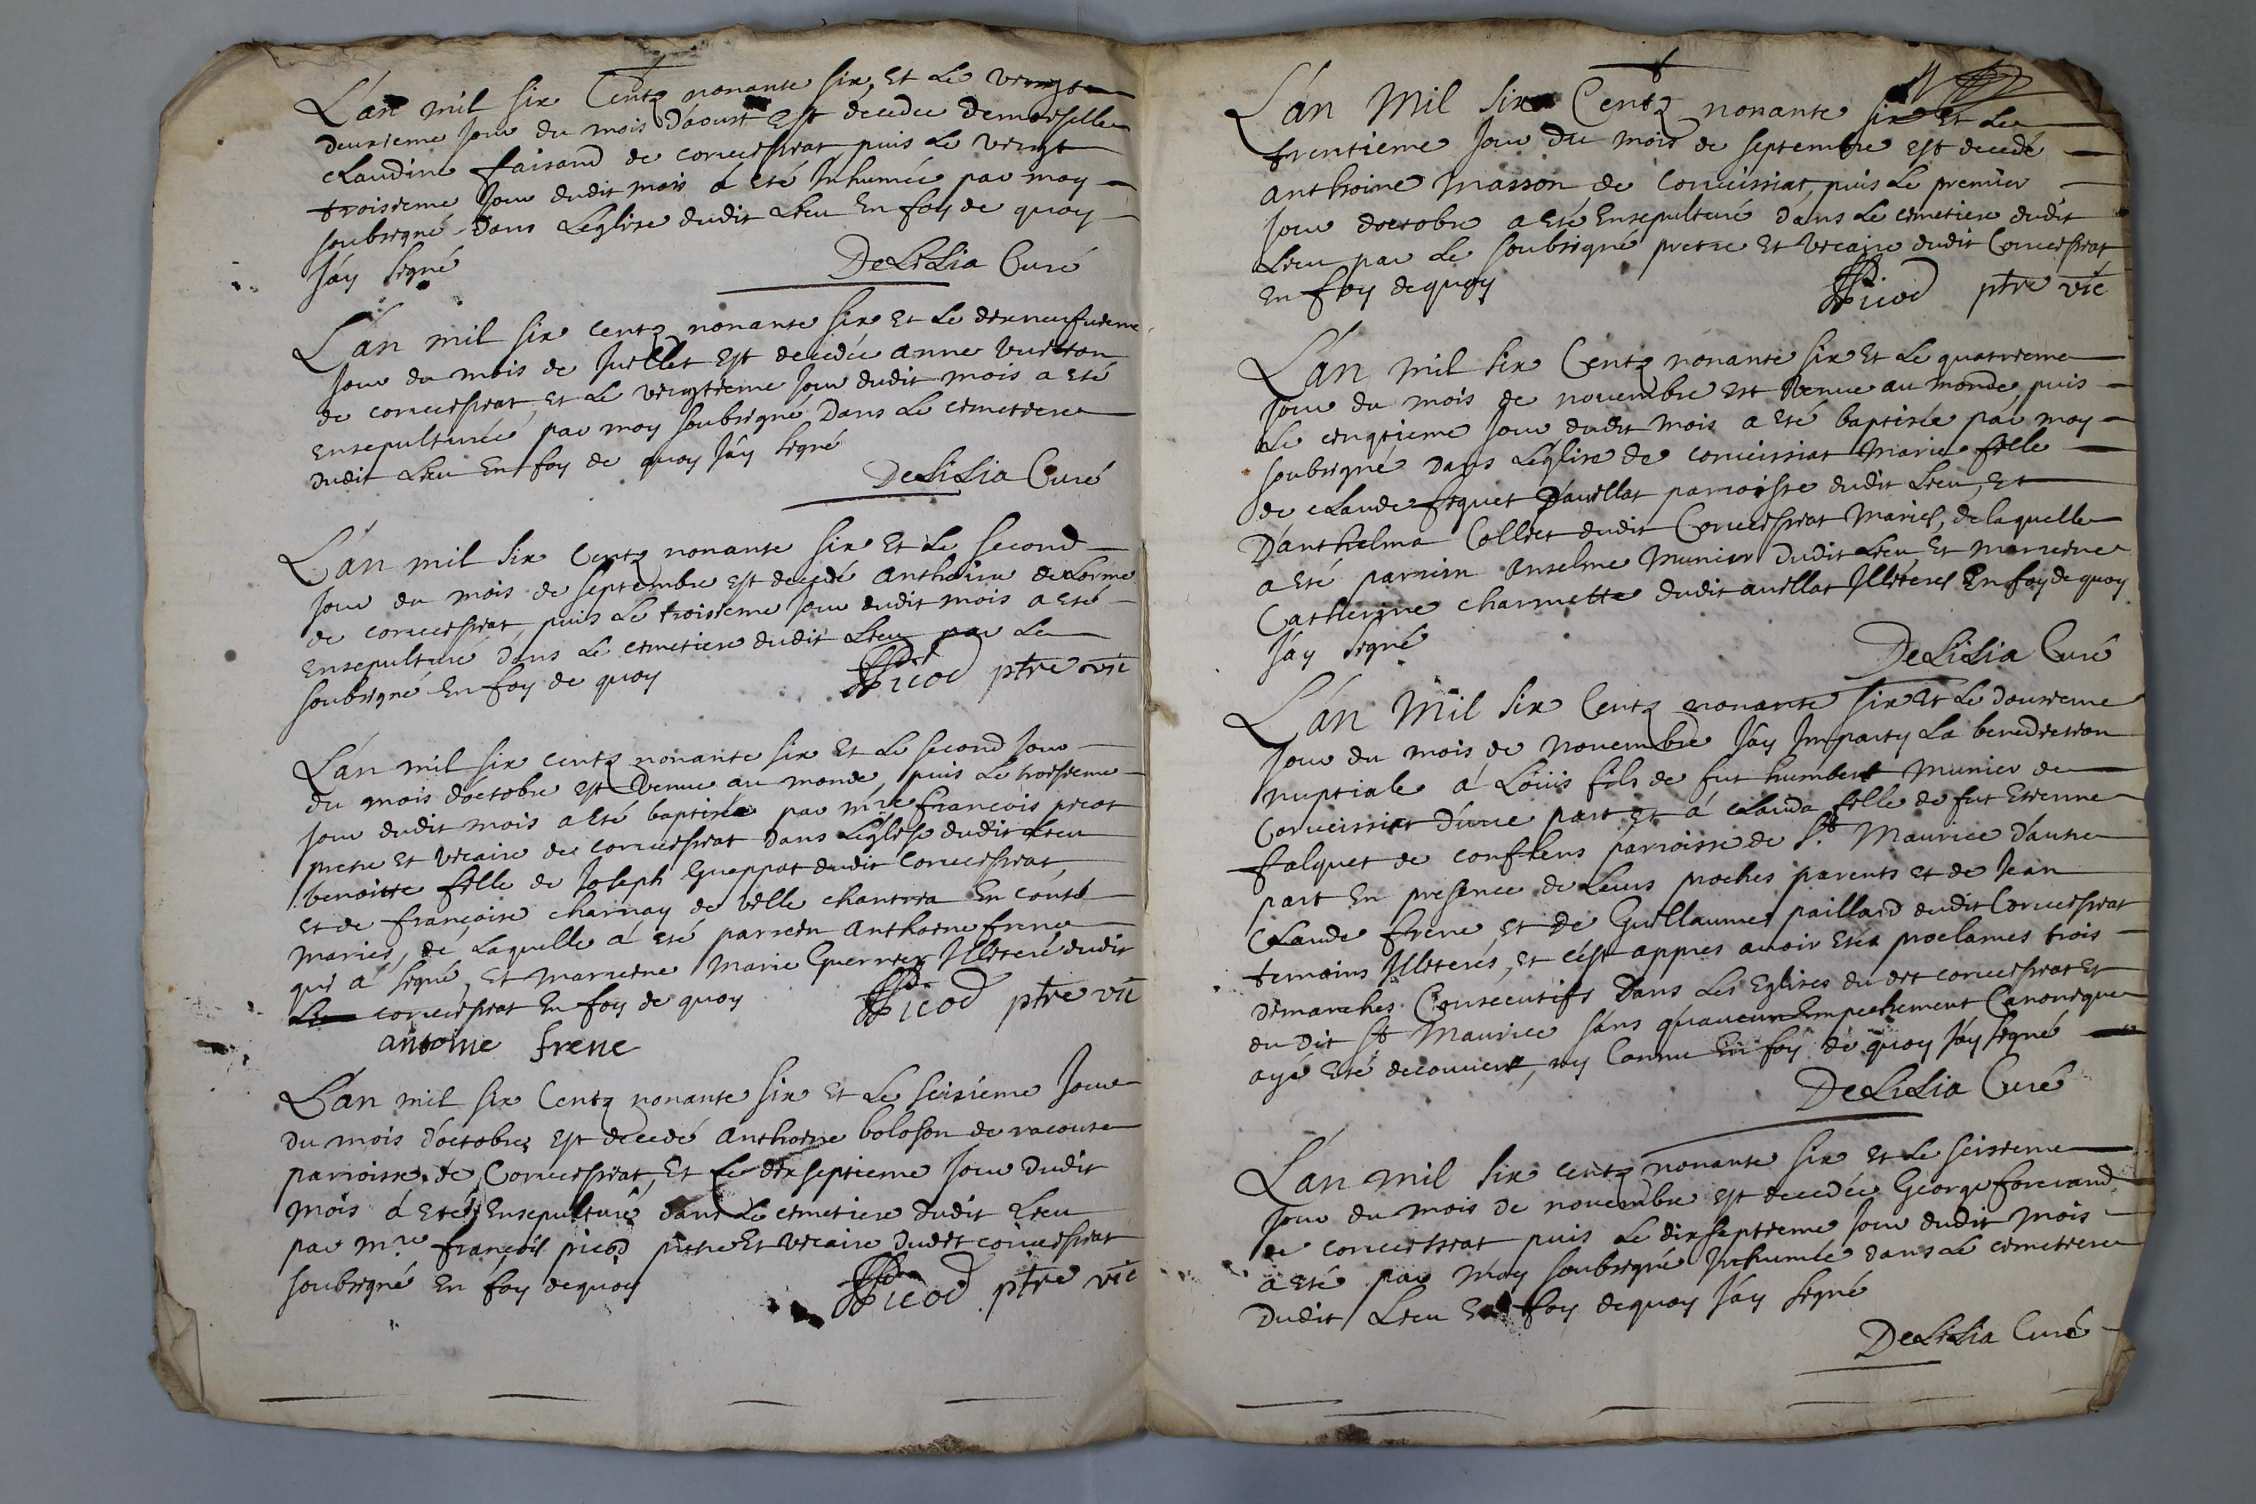 L'an mil six Centz nonante six et le vingt
deuxieme Jour du mois d'aoust est decedee demoiselle
Claudine faisand de corveissiat puis le vingt
troisieme Jour dudit mois á eté Inhumée par moy
soubsigné dans L'eglise dudit Lieu En foy de quoy
J'áy signé
DeLiLia Curé
L'an mil six centz nonante six et Le dixneufvieme
Jour du mois de Juillet est decedée anne
de corveissiat, et Le vingtieme Jour dudit mois a eté
ensepulturée par moy soubsigné Dans Le cimetiere
dudit Lieu En foy de quoy J'áy signé
DeLiLia Curé
L'an mil six Centz nonante six Et Le second
Jour du mois de septembre est decedé anthoine deLorme
de corveissiat, puis Le troisieme Jour dudit mois a eté
ensepulturé Dans Le cimetiere dudit Lieu par Le
soubsigné En foy de quoy
Picod ptre vic
L'an mil six centz nonante six et Le second Jour
du mois d'octobre est Venue au monde, puis Le troisieme
Jour dudit mois a eté baptisée par mre francois picot
pretre et vicaire de corveissiat Dans L'eglise dudit Lieu
benoitte fille de Joseph Gueppat dudit corveissiat,
et de francoise charnay de ville chantria En Conté
mariés, de Laquelle á eté parrein anthoine frene
qui á signé, Et marreine Marie Guerrier Illiteré dudit
corveissiat En foy de quoy
Picod ptre vic
antoine frene
L'an mil six Centz nonante six et Le seisieme Jour
Du mois d'octobre est decedé anthoine boloson de racouse
parroisse de Corveissiat, Et Le dixseptieme Jour Dudit
mois á eté Ensepulturé dans Le cimetiere dudit Lieu
par mre françois picod pretre Et vicaire Dudit corveissiat
soubsigné En foy dequoy
Picod ptre vic
L'án Mil six Centz nonante six et Le
trentieme Jour Du mois de septembre est decedé
anthoine Masson de Corveissiat, puis Le premier
Jour d'octobre a eté Ensepulturé dáns Le cimetiere dudit
Lieu par Le soubsigné pretre Et vicaire dudit Corveissiat
En foy dequoy
Picod ptre vic
L'án mil six Centz nonante six Et Le quatrieme
Jour du mois de novembre est Venue au monde, puis
Le cinqtieme Jour dudit mois a eté baptisée par moy
soubsigné dans L'église de corveissiat Marie fille
de claude fiquet D'avillat parroisse dudit Lieu, Et
D'anthelma Colliet dudit Corveissiat Mariés, de laquelle
a eté parrein anselme Munier Dudit Lieu Et marreine
Catherine charmette dudit avillat Illiterés En foy de quoy
J'áy signé
DeLiLia Curé
L'án Mil six Centz nonante six Et Le Dousieme
Jour du mois de Novembre J'áy Imparty La benediction
nuptiale á Loüis fils de fut humbert Munier de
Corveissiat d'une part et á Clauda fille de fut Etienne
falquet de conflens parroisse de St Maurice d'autre
part En presence de Leurs proches parents et de Jean
Claude frene et De Guillaume paillard dudit Corveissiat
temoins Illiterés, Et c'est appres avoir etéz proclames trois
Dimanches Consecutifs Dans Les Eglises du dit corveissiat Et
du Dit St Maurice sáns qu'aucun Empechement Canonique
aye eté decouvert, ny Connu En foy de quoy J'áy signé
DeLiLia Curé
L'án mil six centz nonante six et Le seisieme
Jour du mois de novembre est decedée George forerand
de corveissiat puis Le dixseptieme Jour dudit mois
a eté par Moy soubsigné Inhumée dans Le cimetiere
Dudit Lieu En foy dequoy J'áy signé
DeLiLia Curé